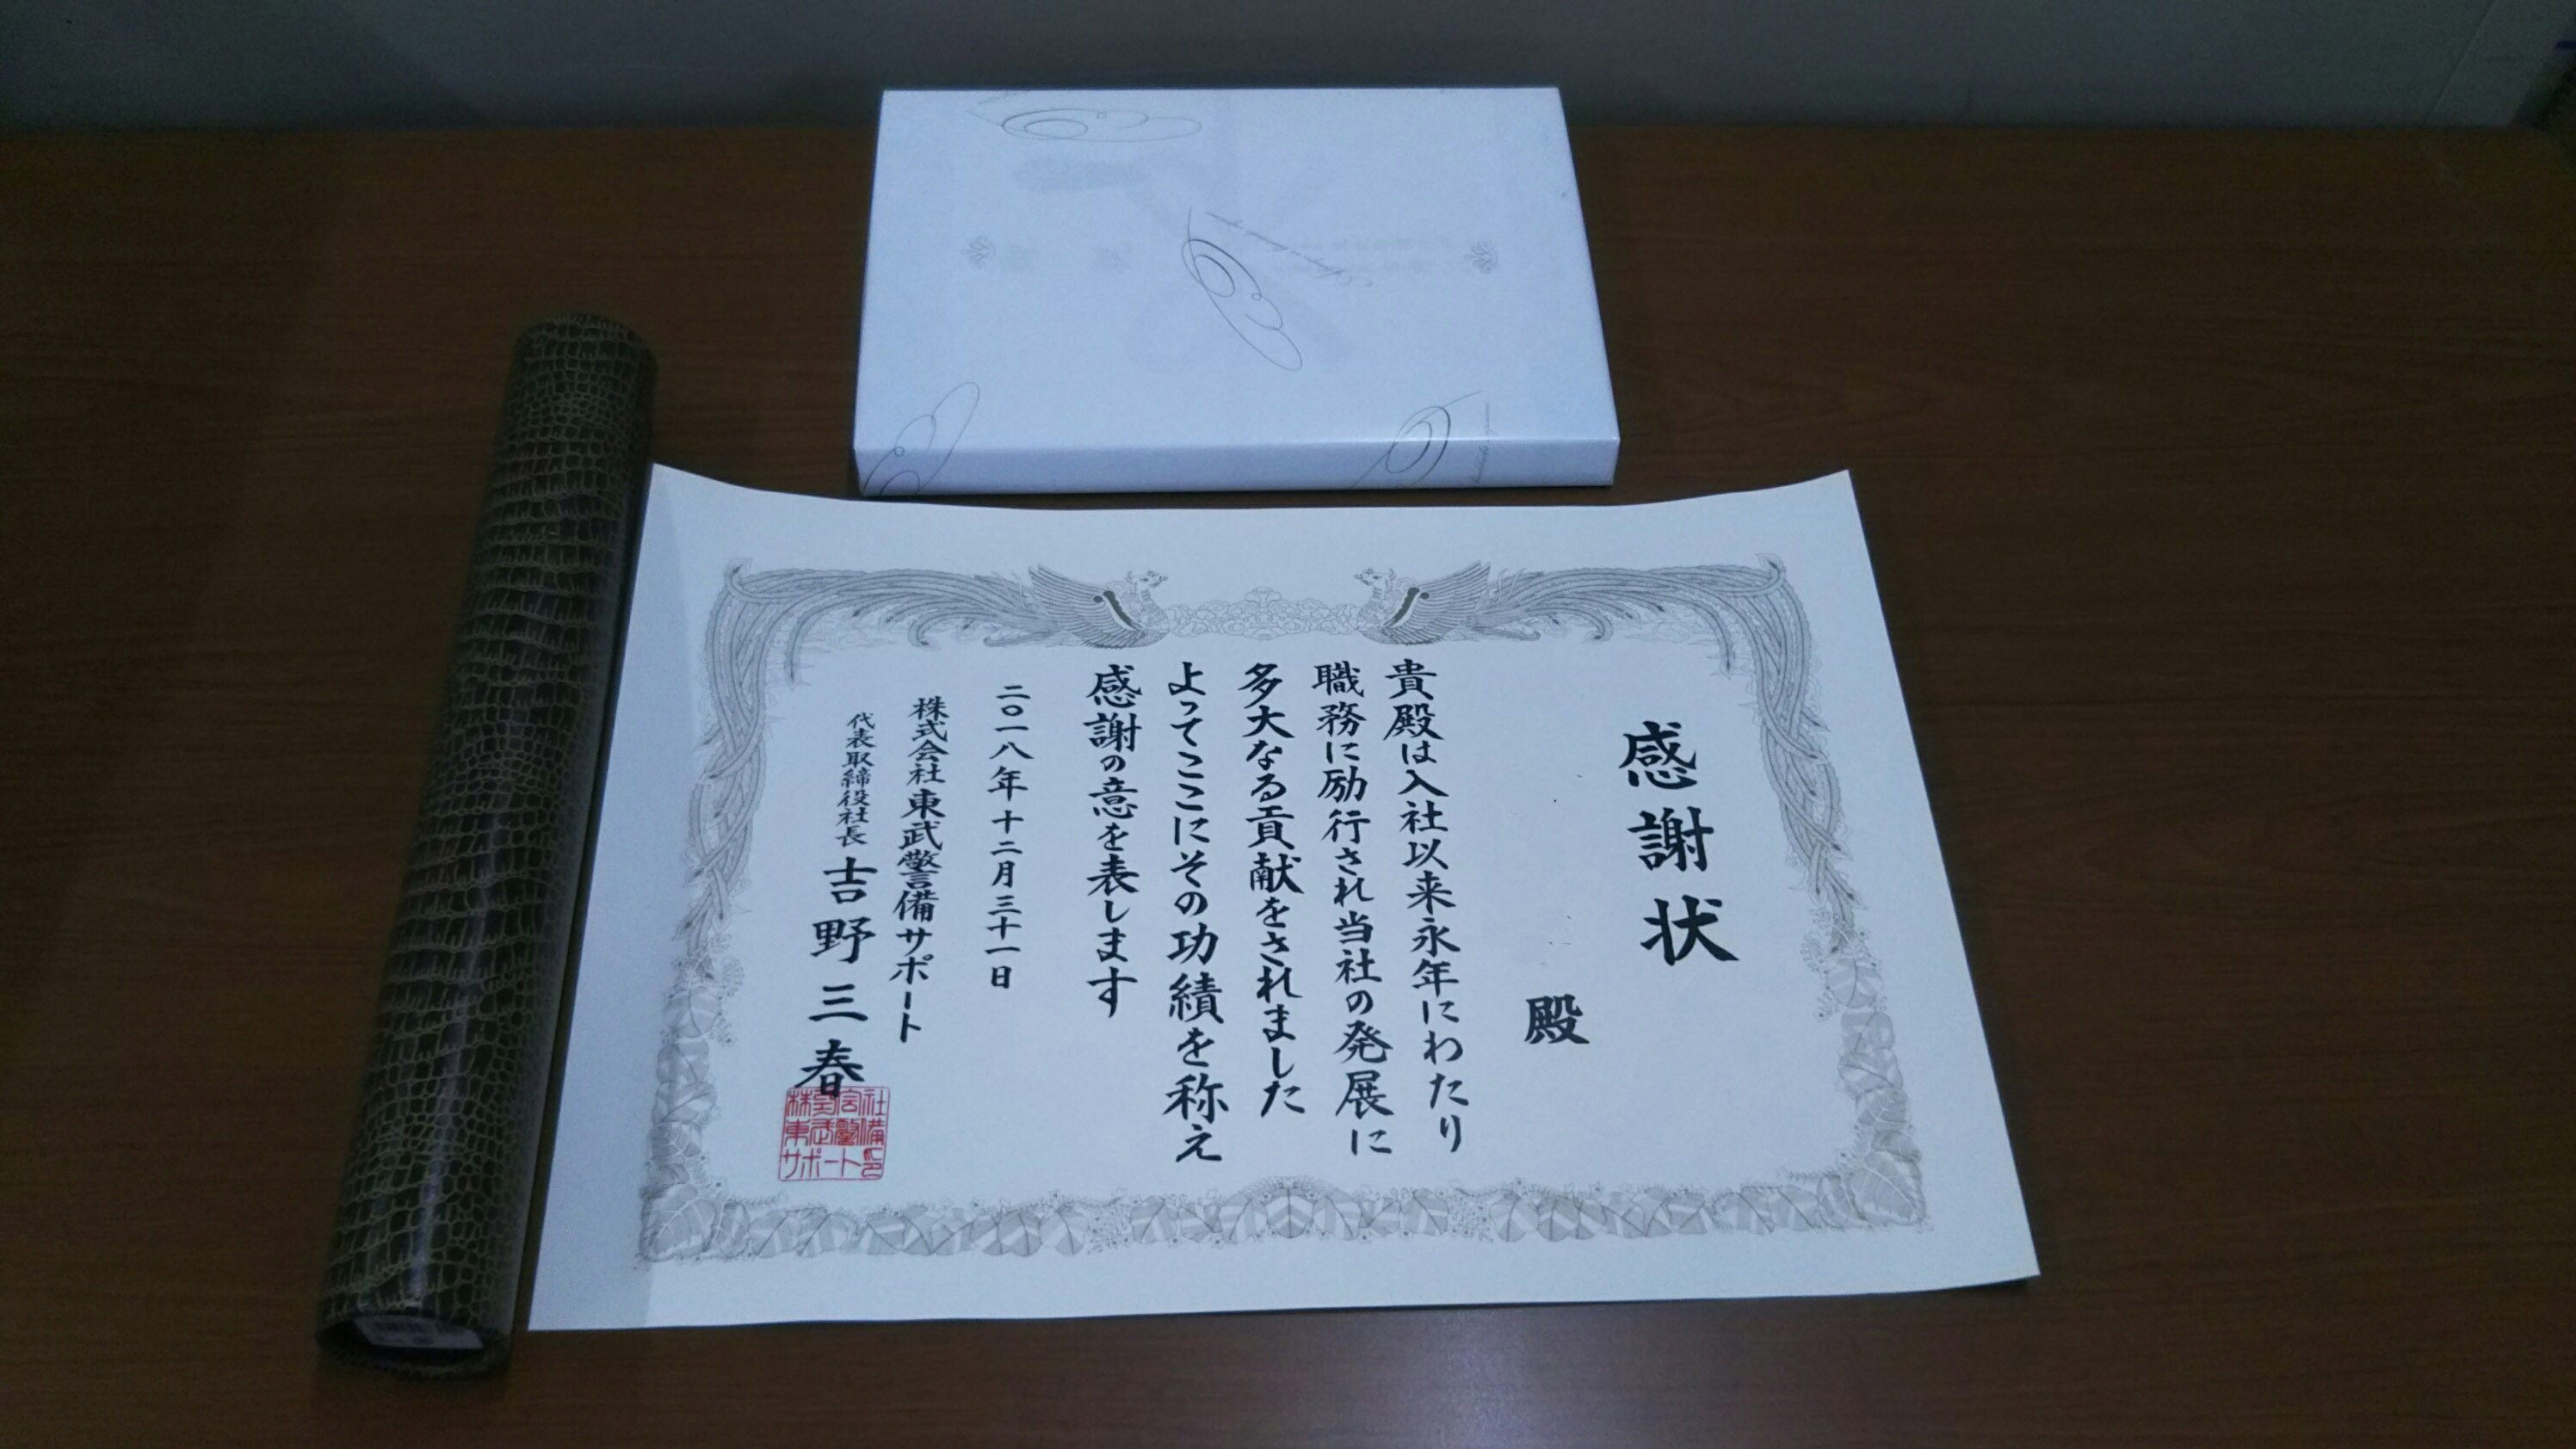 感謝状
殿
貴殿は入社以来永年にわたり
職務に励行され当社の発展に
多大なる貢献をされました
よってここにその功績を称え
感謝の意を表します
二〇一八年十二月三十一日
株式会社東武警備サポート
代表取締役社長 吉野三春
株式会社
東武警備
サポート印